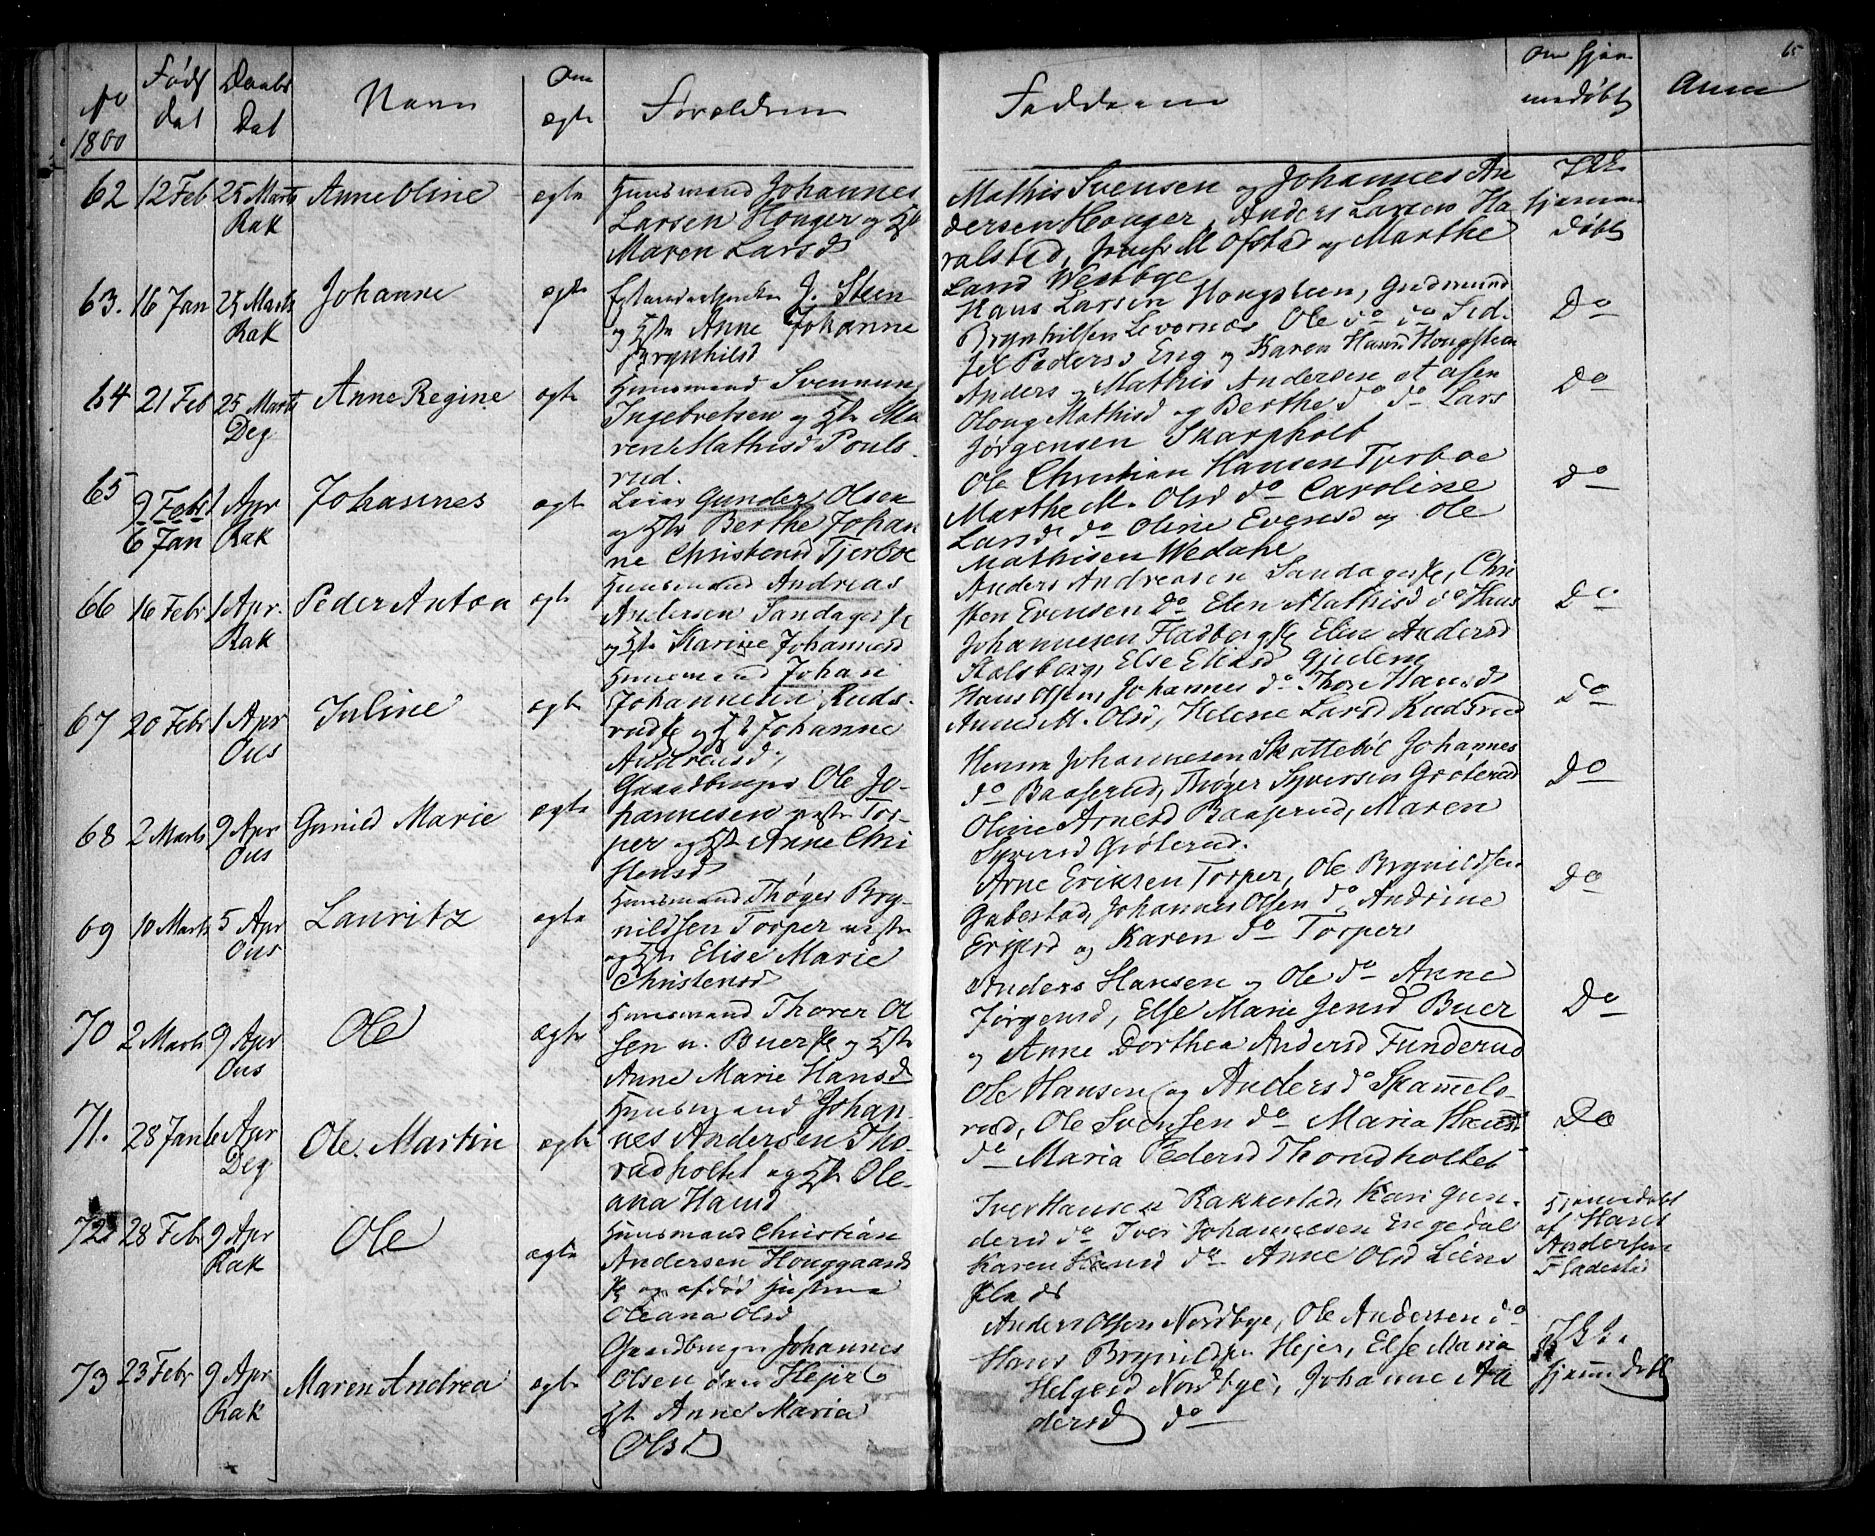 No 1860
Født dat
Daabs Dat
Navn
Om ægte
Forældrene
Fadderne
Om hjemmedøbt
Anm
65
62 12 Feb 25 Marts Rak Anne Oline ægte Huusmand Johannes
Larsen Houger og Hst
Maren Larsd
Mathis Svensen og Johannes An
dersen Houger, Anders Larsen Ha
ralstad, Jomfr M Ofstad og Marthe
Lund Westbye
Ikke
hjemme
døbt
63. 16 Jan 25 Marts Rak Johanne ægte J. Steen
og Hst Anne Johanne
Brynhilsd
Hans Larsen Hougsteen, Gudmund
Brynhilsen Levernæs Ole do do Sid
sel Pedersd Eng og Karen Hansd Hougsteen
Do
64 21 Feb 25 Marts Deg Anne Regine ægte Huusmand Svennung
Ingebretsen og Hst Ma
ren Mathisd Pouls
rud.
Anders og Mathis Andersen
Mathisd og Berthe do do Lars
Jørgensen Skarpholt
Do
65 9 Febr 6 Jan 1 Apr Rak Johannes ægte Leier Gunder Olsen
og Hst Berthe Johan
ne Christensd Tjerboe
Ole Christian Hansen Tjerboe
Marthe M. Olsd do Caroline
Larsd do Oline Evensd og Ole
Mathisen Wedahl
Do
66 16 Febr 1 Apr. Rak Peder Anton ægte Huusmand Andreas
Andersen Sandager
og Hst Karine Johannesd
Anders Andreasen Sandager, Chri
sten Evensen Do Elen Mathisd do Hans
Johannesen Fladberg Elen Andersd
Stalsberg, Else Eliasd Gjulem
Do
67 20 Febr 1 Apr Ous Juline ægte Huusmand Johan
Johannesen Ruds
rud og Hst Johanne
Andreasd,
Hans Olsen, Johannes do Thor Hansd
Anne M. Olsd, Helene Larsd Rudsrud
Do
68 2 Marts 9 Apr Ous Gunild Marie ægte Gaardbruger Ole Jo-
hannesen vestre Tor-
per og Hst Anne Chri
stensd
Johannesen Skattebøl Johannes
do Baaserud, Thøger Syversen Gjølerud
Oline Arnesd Baaserud, Maren
Syversd Gjølerud.
Do
69 10 Marts 5 Apr Ous Lauritz ægte Huusmand Thøger Bry
nildsen Torper vestre
og Hst Elise Marie
Christensd
Arne Eriksen Torper, Ole Brynildsen
Gabestad, Johannes Olsen do, Andrine
Eriksd og Karen do Torper
Do
70 2 Marts 9 Apr Ous Ole ægte Huusmand Thorer Ol
sen u. Buer og Hst
Anne Marie Hansd
Anders Hansen og Ole do Anne
Jørgensd, Else Marie Jensd Buer
og Anne Dorthea Andersd Funderud
Do
71. 28 Jan 6 Apr Deg Ole Martin ægte Huusmand Johan
nes Andersen Tho
rudholtet og Hst Ole
ana Hansd
Ole Hansen og Anders do Skammels
rud, Ole Svensen do Maria Hansd
do Maria Pedersd Thorudholtet
Do
72 28 Feb 9 Apr Rak Ole ægte Huusmand Christian
Andersen Houggaards
og afdød Hustrue
Oleana Olsd
Iver Hansen Rakkestad, Kari Gun
dersd do Iver Johannesen Engedal
Karen Hansd do Anne Olsd Liens
plads
Hjemmedøbt
af Hans
Andersen
Fladestad
73 23 Febr 9 Apr Rak Maren Andrea ægte Gaardbruger Johannes
Olsen Hejer
Hst Anne Maria
Olsd
Anders Olsen Nordbye, Ole Andersen do
Hans Brynildsen Hejer, Else Maria
Helgesd Nordbye, Johanne An
dersd do
Ikke
hjemmedøbt